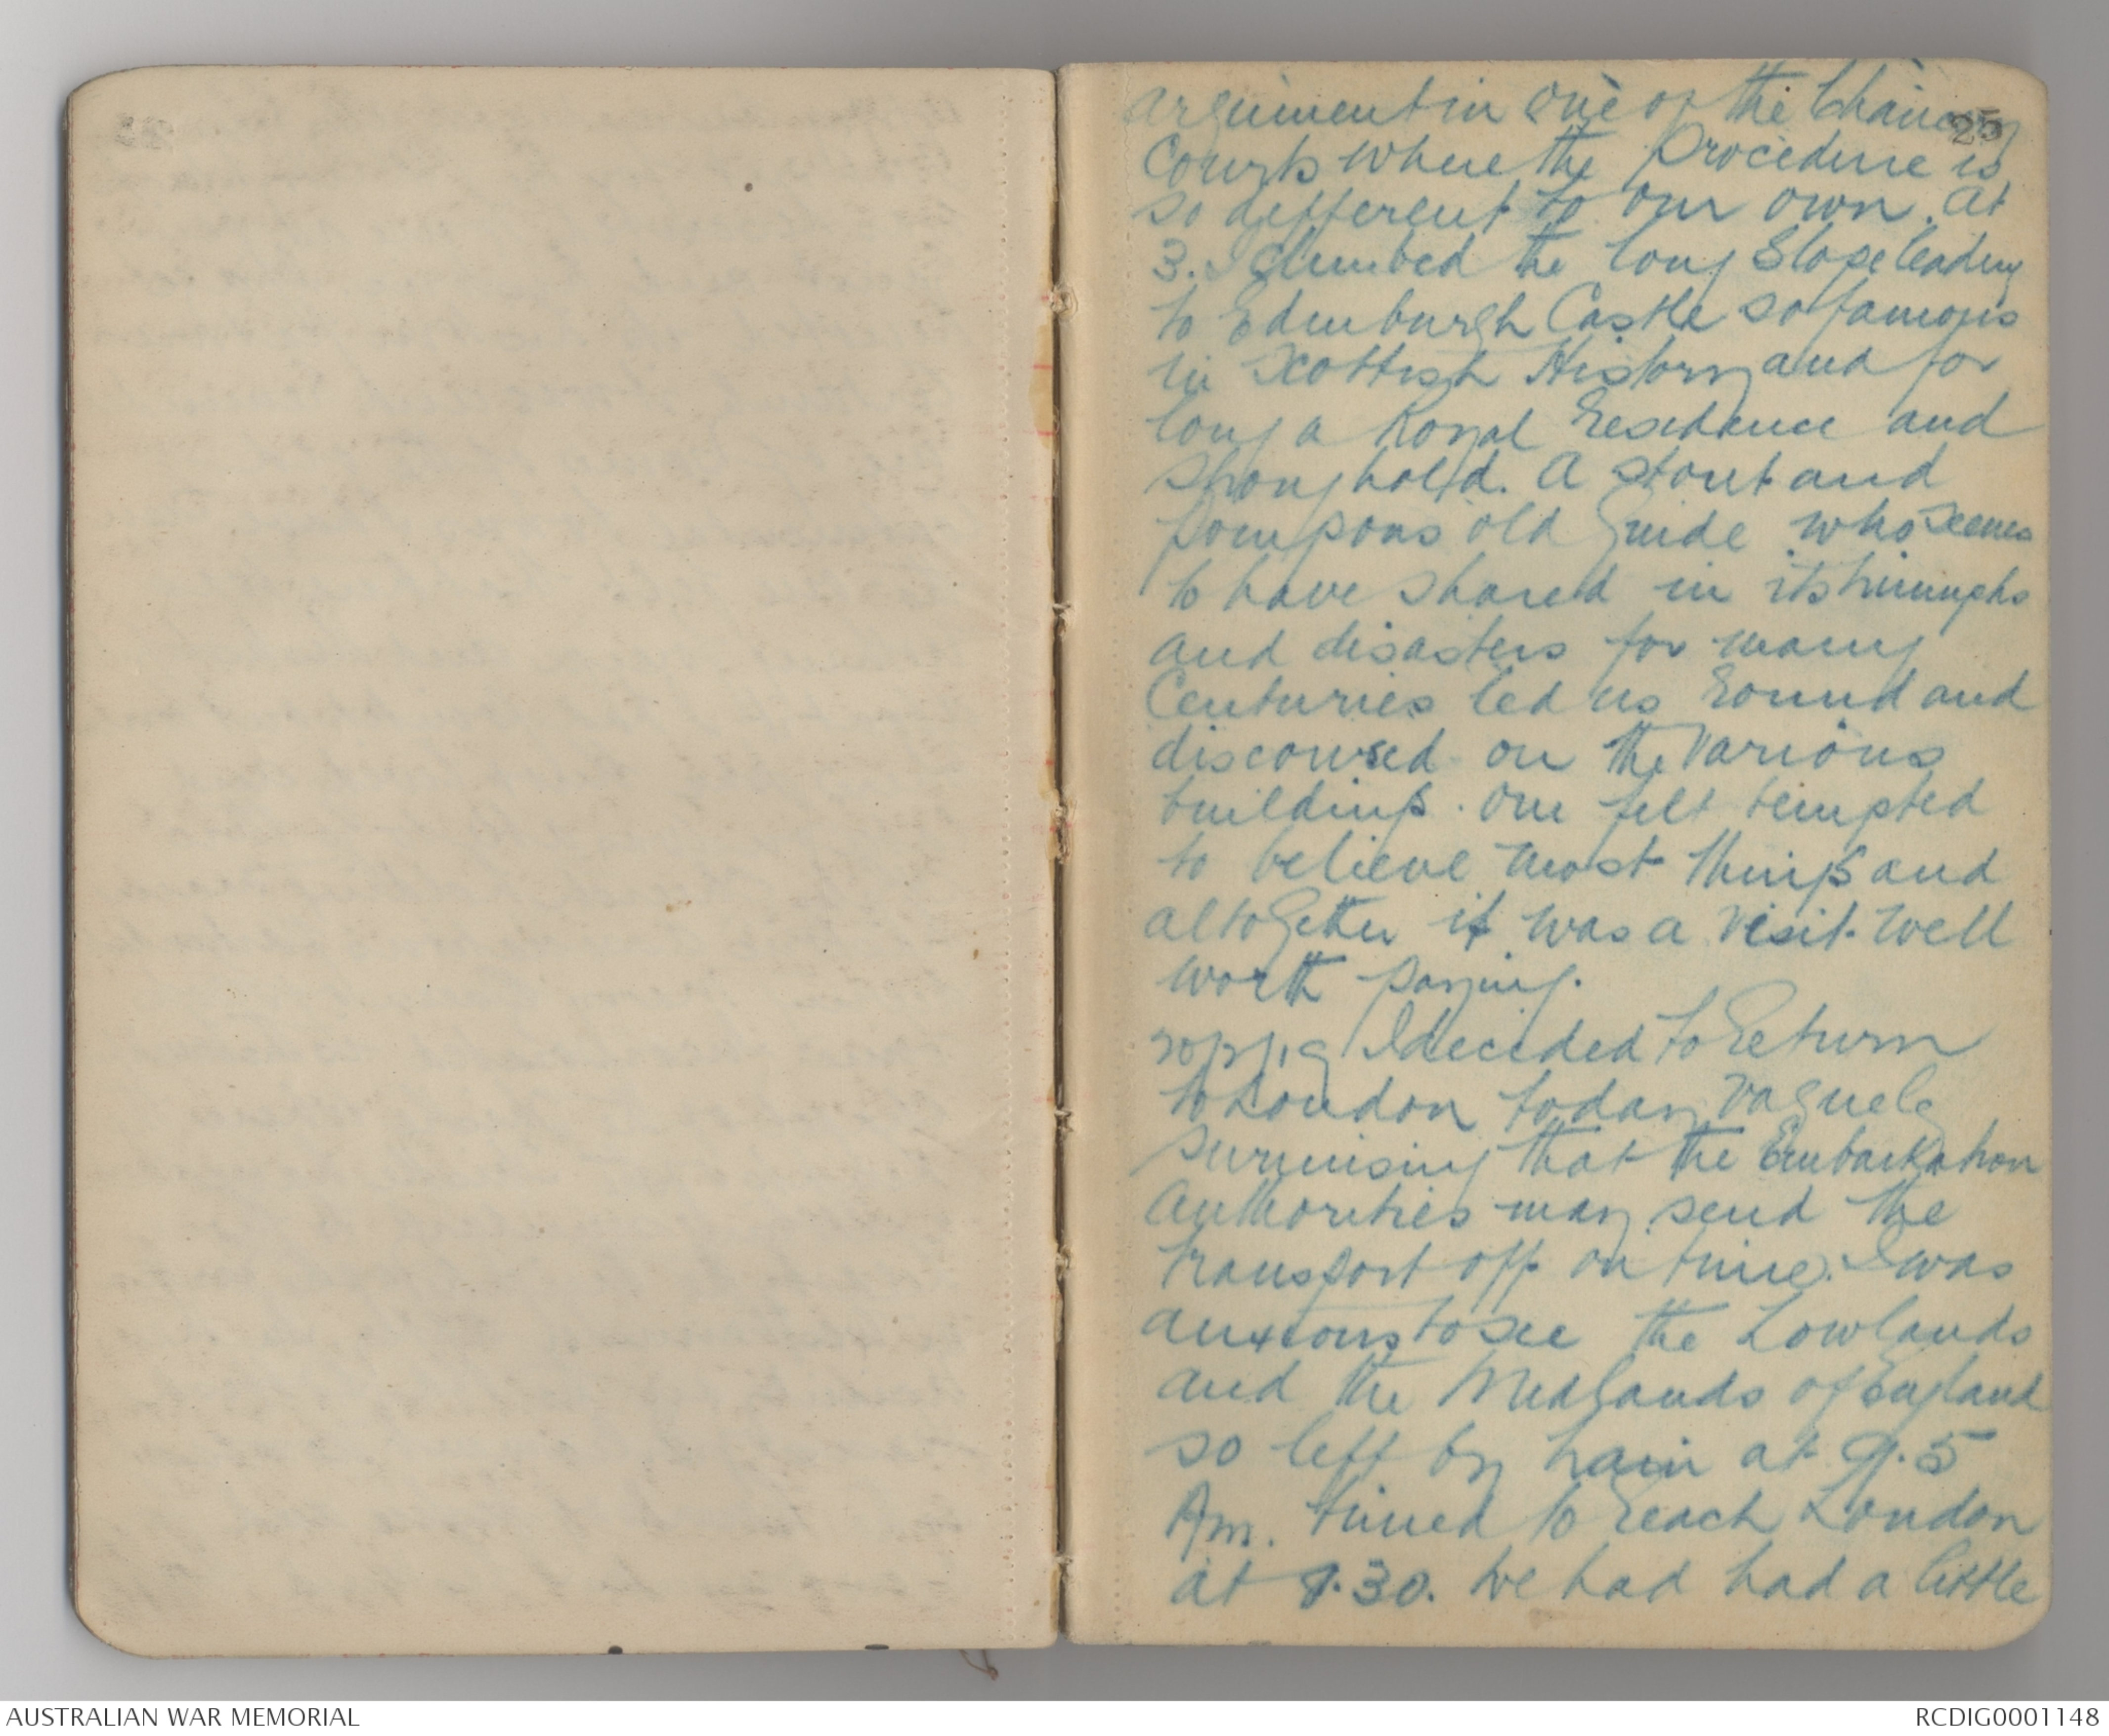 25
argument in one of the Chancery
Courts where the Procedure is
so different to our own. At
3. I climbed the long Slope leading
to Edinburgh Castle so famous
in Scottish History and for
long a Royal Residence and
Stronghold. A stout and
pompous old Guide who seems
to have shared in its triumphs
and disasters for many
Centuries led us round and
discoursed on the various
buildings. One felt tempted
to believe most things and
altogether it was a visit well
worth paying.
I decided to return
to London today vaguely
surmising that the Embarkation
Authorities may send the
transport off on time. I was
anxious to see the Lowlands
and the Midlands of England
so left by train at 9.5
Am. timed to reach London
at 7.30. We had had a little
AUSTRALIAN WAR MEMORIAL
RCDIG0001148